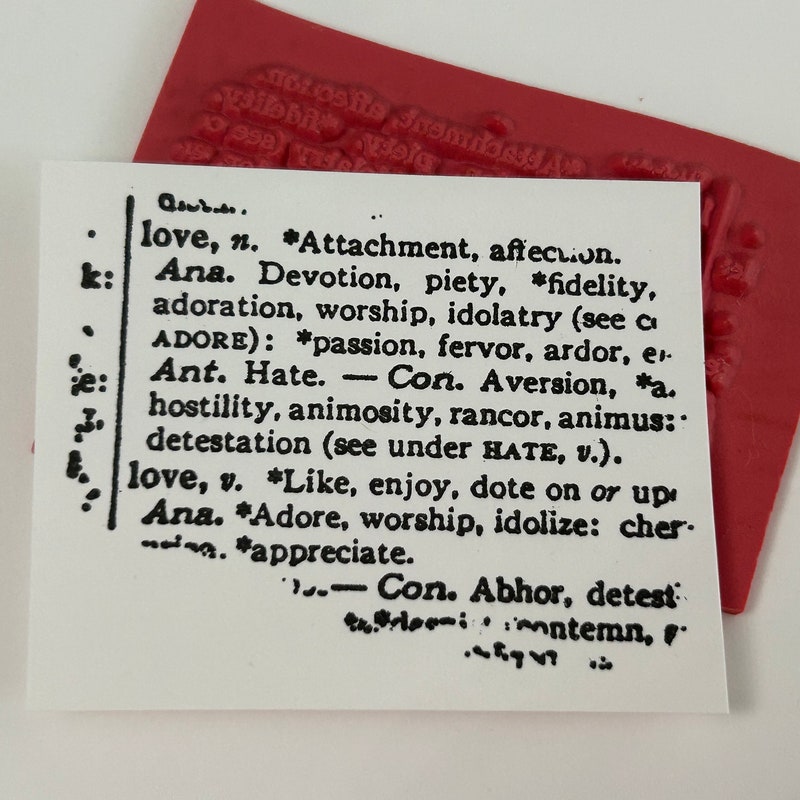 love, n. *Attachment, affection.
k:
Ana. Devotion, piety, *fidelity,
adoration, worship, idolatry (see
ADORE): *passion, fervor, ardor,
e:
Ant. Hate. — Con. Aversion,
hostility, animosity, rancor, animus:
detestation (see under HATE, v.).
love, v. *Like, enjoy, dote on or
Ana. *Adore, worship, idolize:
*appreciate.
— Con. Abhor, detest